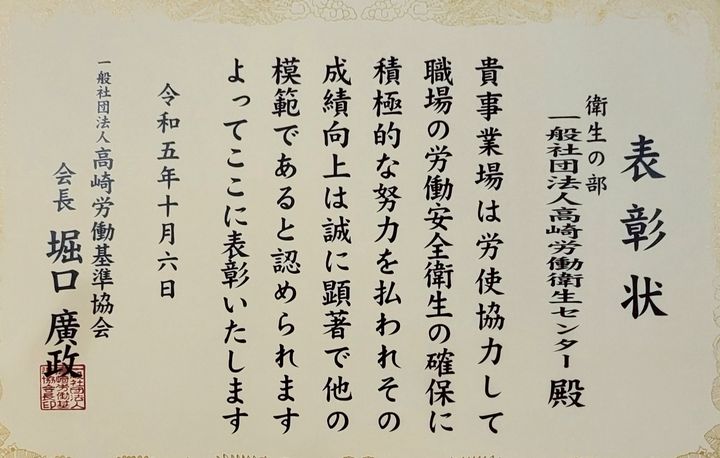 表彰状
衛生の部
一般社団法人高崎労働衛生センター 殿
貴事業場は労使協力して
職場の労働安全衛生の確保に
積極的な努力を払われその
成績向上は誠に顕著で他の
模範であると認められます
よってここに表彰いたします
令和五年十月六日
一般社団法人 高崎労働基準協会
会長 堀口 廣政
一般社団法人高崎労働基準協会長印